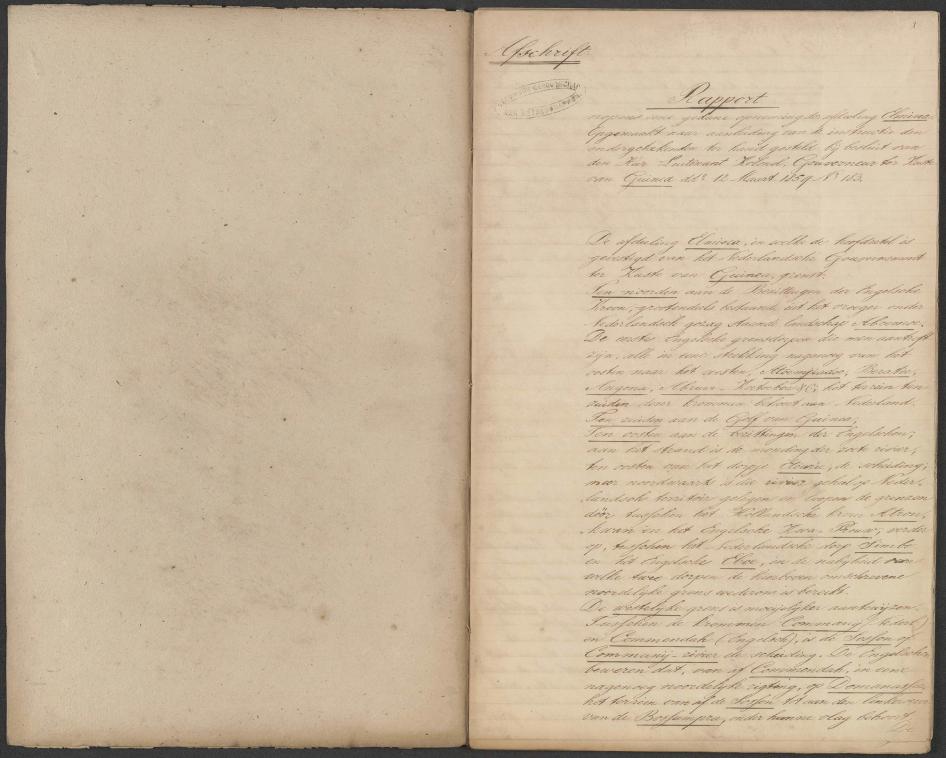 1
Afschrift.
Rapport
nopens eene gedane opneming der afdeeling Elmina.
Opgemaakt naar aanleiding van de instructie den
ondergeteekenden ter hand gesteld bij besluit van
den Luitenant Kolonel, Gouverneur ter Kuste
van Guinea dd. 12 Maart 1859 No 183.
De afdeeling Elmina, in welke de hoofdzetel is
gevestigd van het Nederlandsche Gouvernement
ter Kuste van Guinea, grenst.
Ten noorden aan de Bezittingen der Engelsche
Kroon, grootendeels bestaande uit het vroeger onder
Nederlandsch gezag staande landschap
De eerste Engelsche grensdorpen die men aantreft
zijn, alle in eene strekking nagenoeg van het
oosten naar het westen,
het terrein ten
zuiden dezer krommen behoort aan Nederland.
Ten zuiden aan de Golf van Guinea,
Ten oosten aan de bezittingen der Engelschen;
aan het strand is de monding der zoete rivier,
ten oosten van het dorpje de scheiding;
meer noordwaarts is die rivier geheel op Neder-
landsche territoir gelegen en loopen de grenzen
door tusschen het Hollandsche krom
en het Engelsche verder
op, tusschen het Nederlandsche dorp Simbo
en het Engelsche in de nabijheid van
welke twee dorpen de hierboven omschrevene
noordelijke grens wederom is bereikt.
De westelijke grens is moeijelijker aantewijzen.
Tusschen de krommen Commany
en Commendah (Engelsch), is de Sosson of
Commany-rivier de scheiding. De Engelschen
beweren dat, van af Commendah, in eene
nagenoeg noordelijke rigting, op
het terrein van af de Sosson tot aan den linkeroever
van de Bossumpra, onder hunne vlag behoort.
De